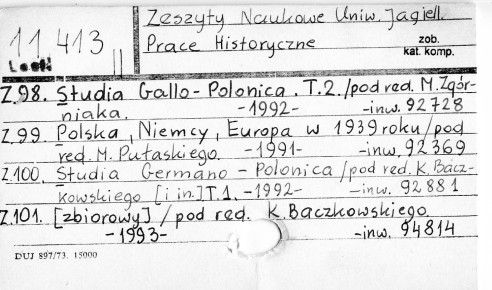 Zeszyty Naukowe Uniw. Jagiell.
11 413 II Prace Historyczne zob. kat. komp.
Z.98. Studia Gallo-Polonica. T.2./pod red. M. Zgór-
niaka. -1992- -inw. 92728
Z.99. Polska, Niemcy, Europa w 1939 roku/pod
red. M. Pułaskiego. -1991- -inw. 92369
Z.100. Studia Germano-Polonica/pod red. K. Bacz-
kowskiego [i in.] T.1. -1992- -inw. 92881
Z.101. [zbiorowy]/pod red. K. Baczkowskiego
-1993- -inw. 94814
DUJ 897/73. 15000